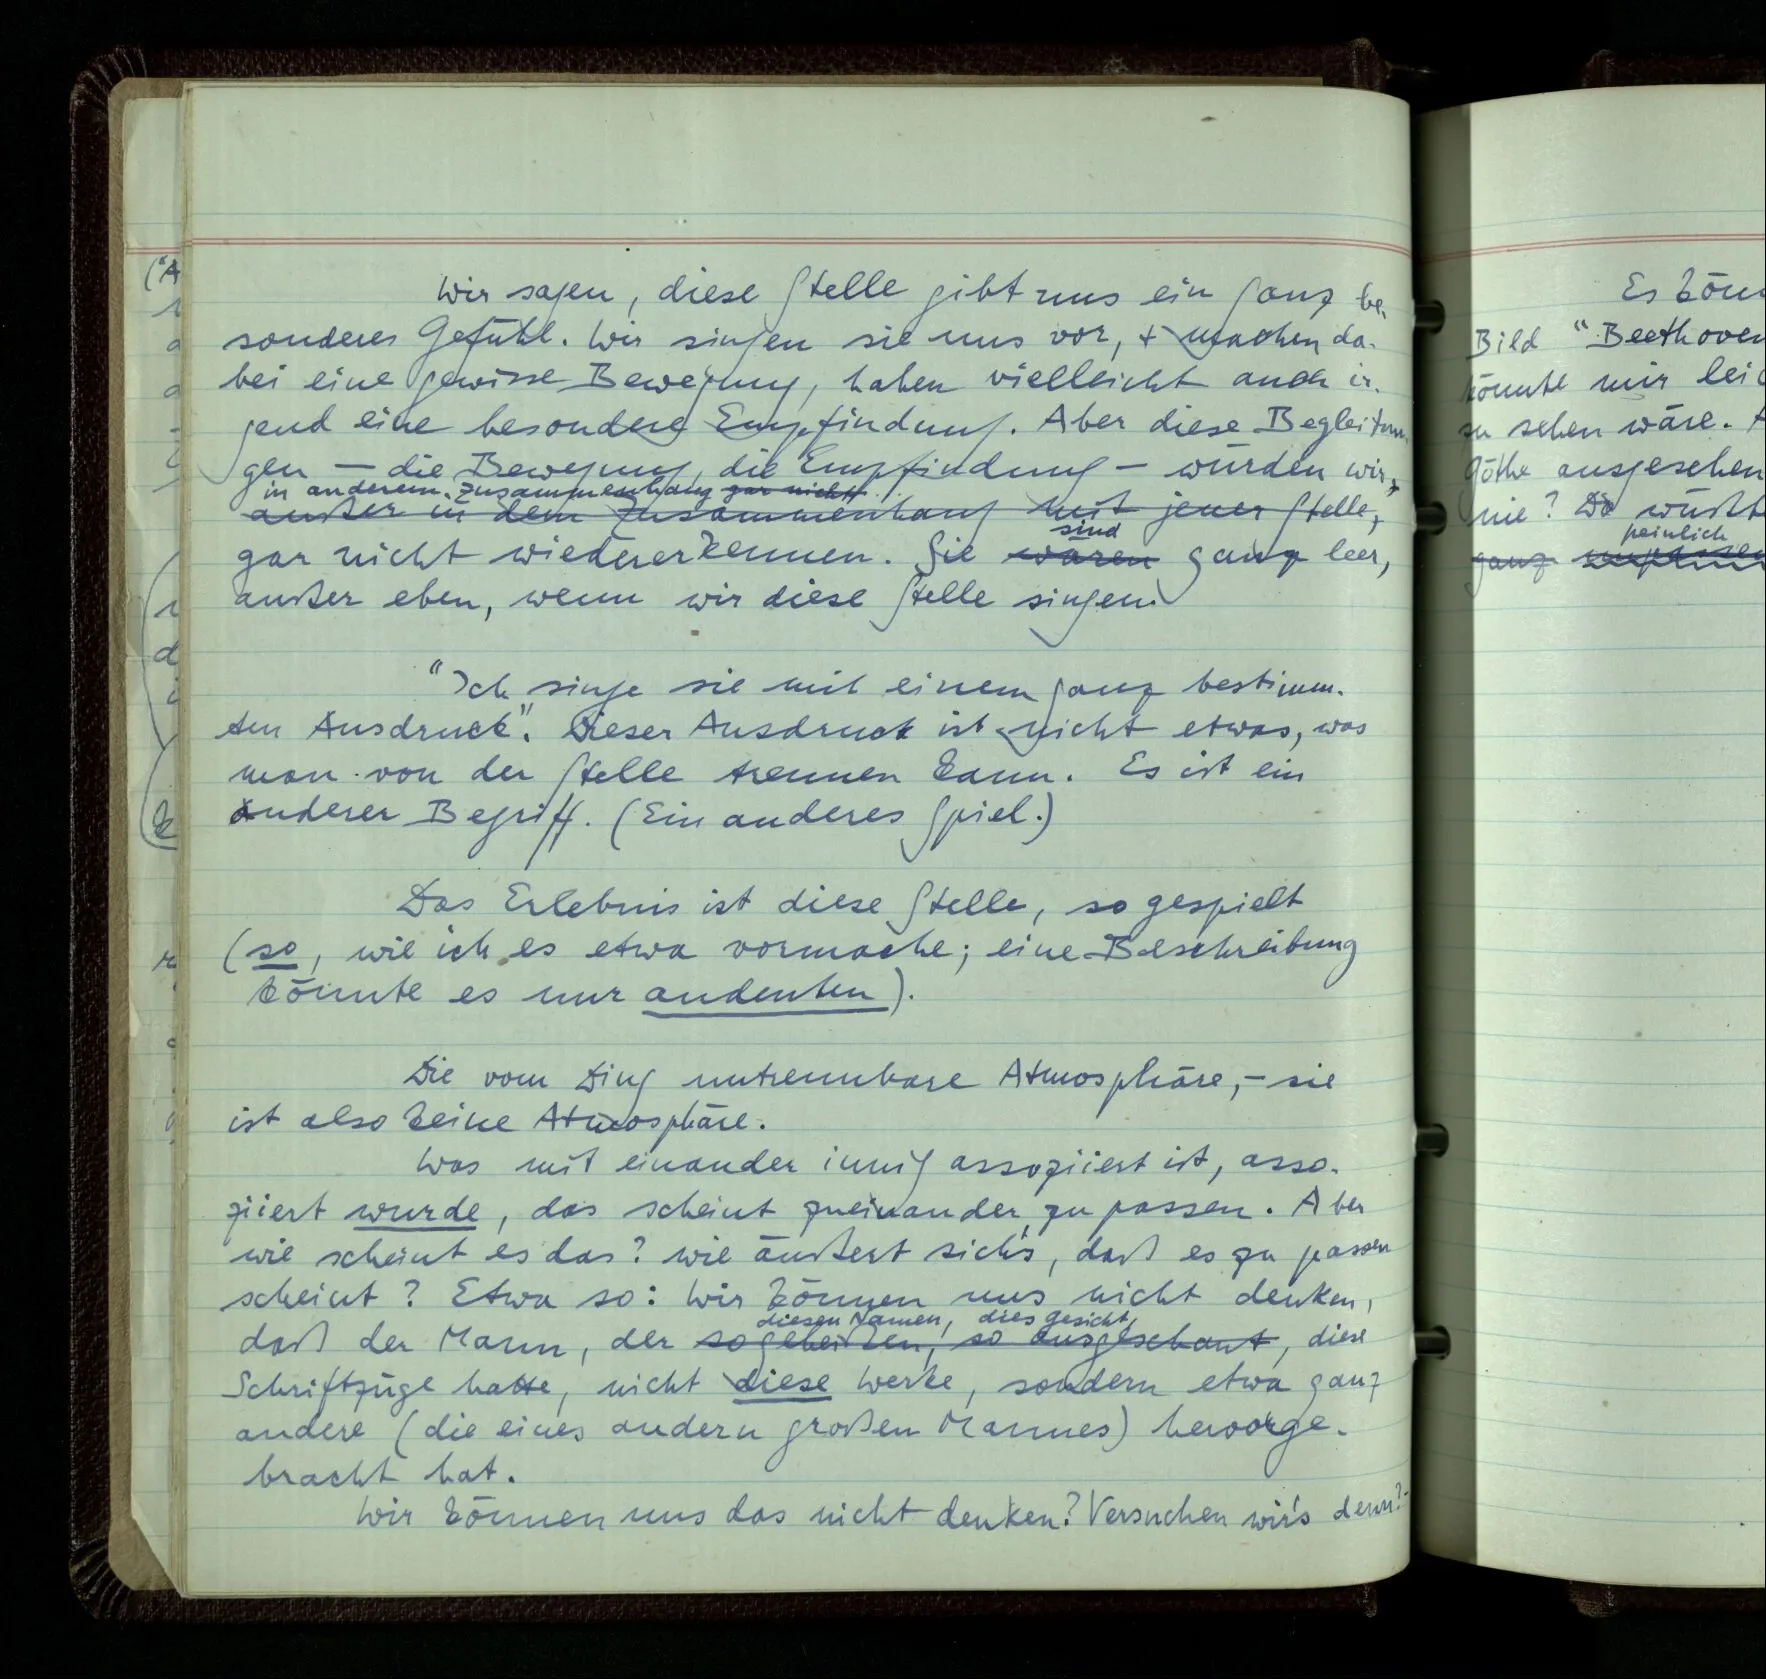 Wir sagen, diese Stelle gibt uns ein ganz be-
sonderes Gefühl. Wir singen sie uns vor, + machen da-
bei eine gewisse Bewegung, haben vielleicht auch ir-
gend eine besondere Empfindung. Aber diese Begleitun-
gen — die Bewegung, die Empfindung — würden wir,
in anderem Zusammenhang gar nicht
außer in dem Zusammenhang mit jener Stelle,
sind
gar nicht wiedererkennen. Sie waren ganz leer,
außer eben, wenn wir diese Stelle singen.
"Ich singe sie mit einem ganz bestimm-
ten Ausdruck". Dieser Ausdruck ist nicht etwas, was
man von der Stelle trennen kann. Es ist ein
anderer Begriff. (Ein anderes Spiel.)
Das Erlebnis ist diese Stelle, so gespielt
(so, wie ich es etwa vormache; eine Beschreibung
könnte es nur andeuten).
Die vom Ding untrennbare Atmosphäre, – sie
ist also keine Atmosphäre.
Was mit einander innig assoziiert ist, asso-
ziiert wurde, das scheint zueinander zu passen. Aber
wie scheint es das? wie äußert sich's, daß es zu passen
scheint? Etwa so: Wir können uns nicht denken,
diesen Namen, dies Gesicht,
daß der Mann, der so geheißen, so ausgeschaut, diese
Schriftzüge hatte, nicht diese Werke, sondern etwa ganz
andere (die eines andern großen Mannes) hervorge-
bracht hat.
Wir können uns das nicht denken? Versuchen wir's denn? –
Es könn
Bild "Beethoven
könnte mir leic
zu sehen wäre. A
Göthe ausgesehen
nie? Da wüßt
peinlich
ganz